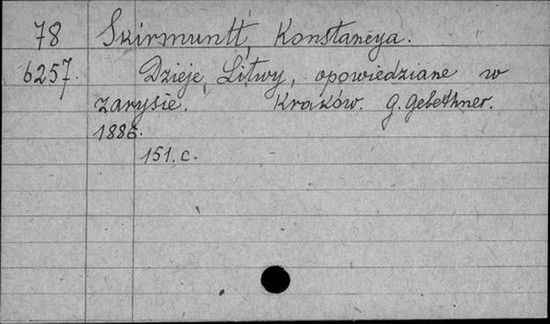 78 Skirmuntt, Konstancya.
6257. Dzieje Litwy, opowiedziane w
zarysie. Kraków. G. Gebethner.
1886.
151. c.